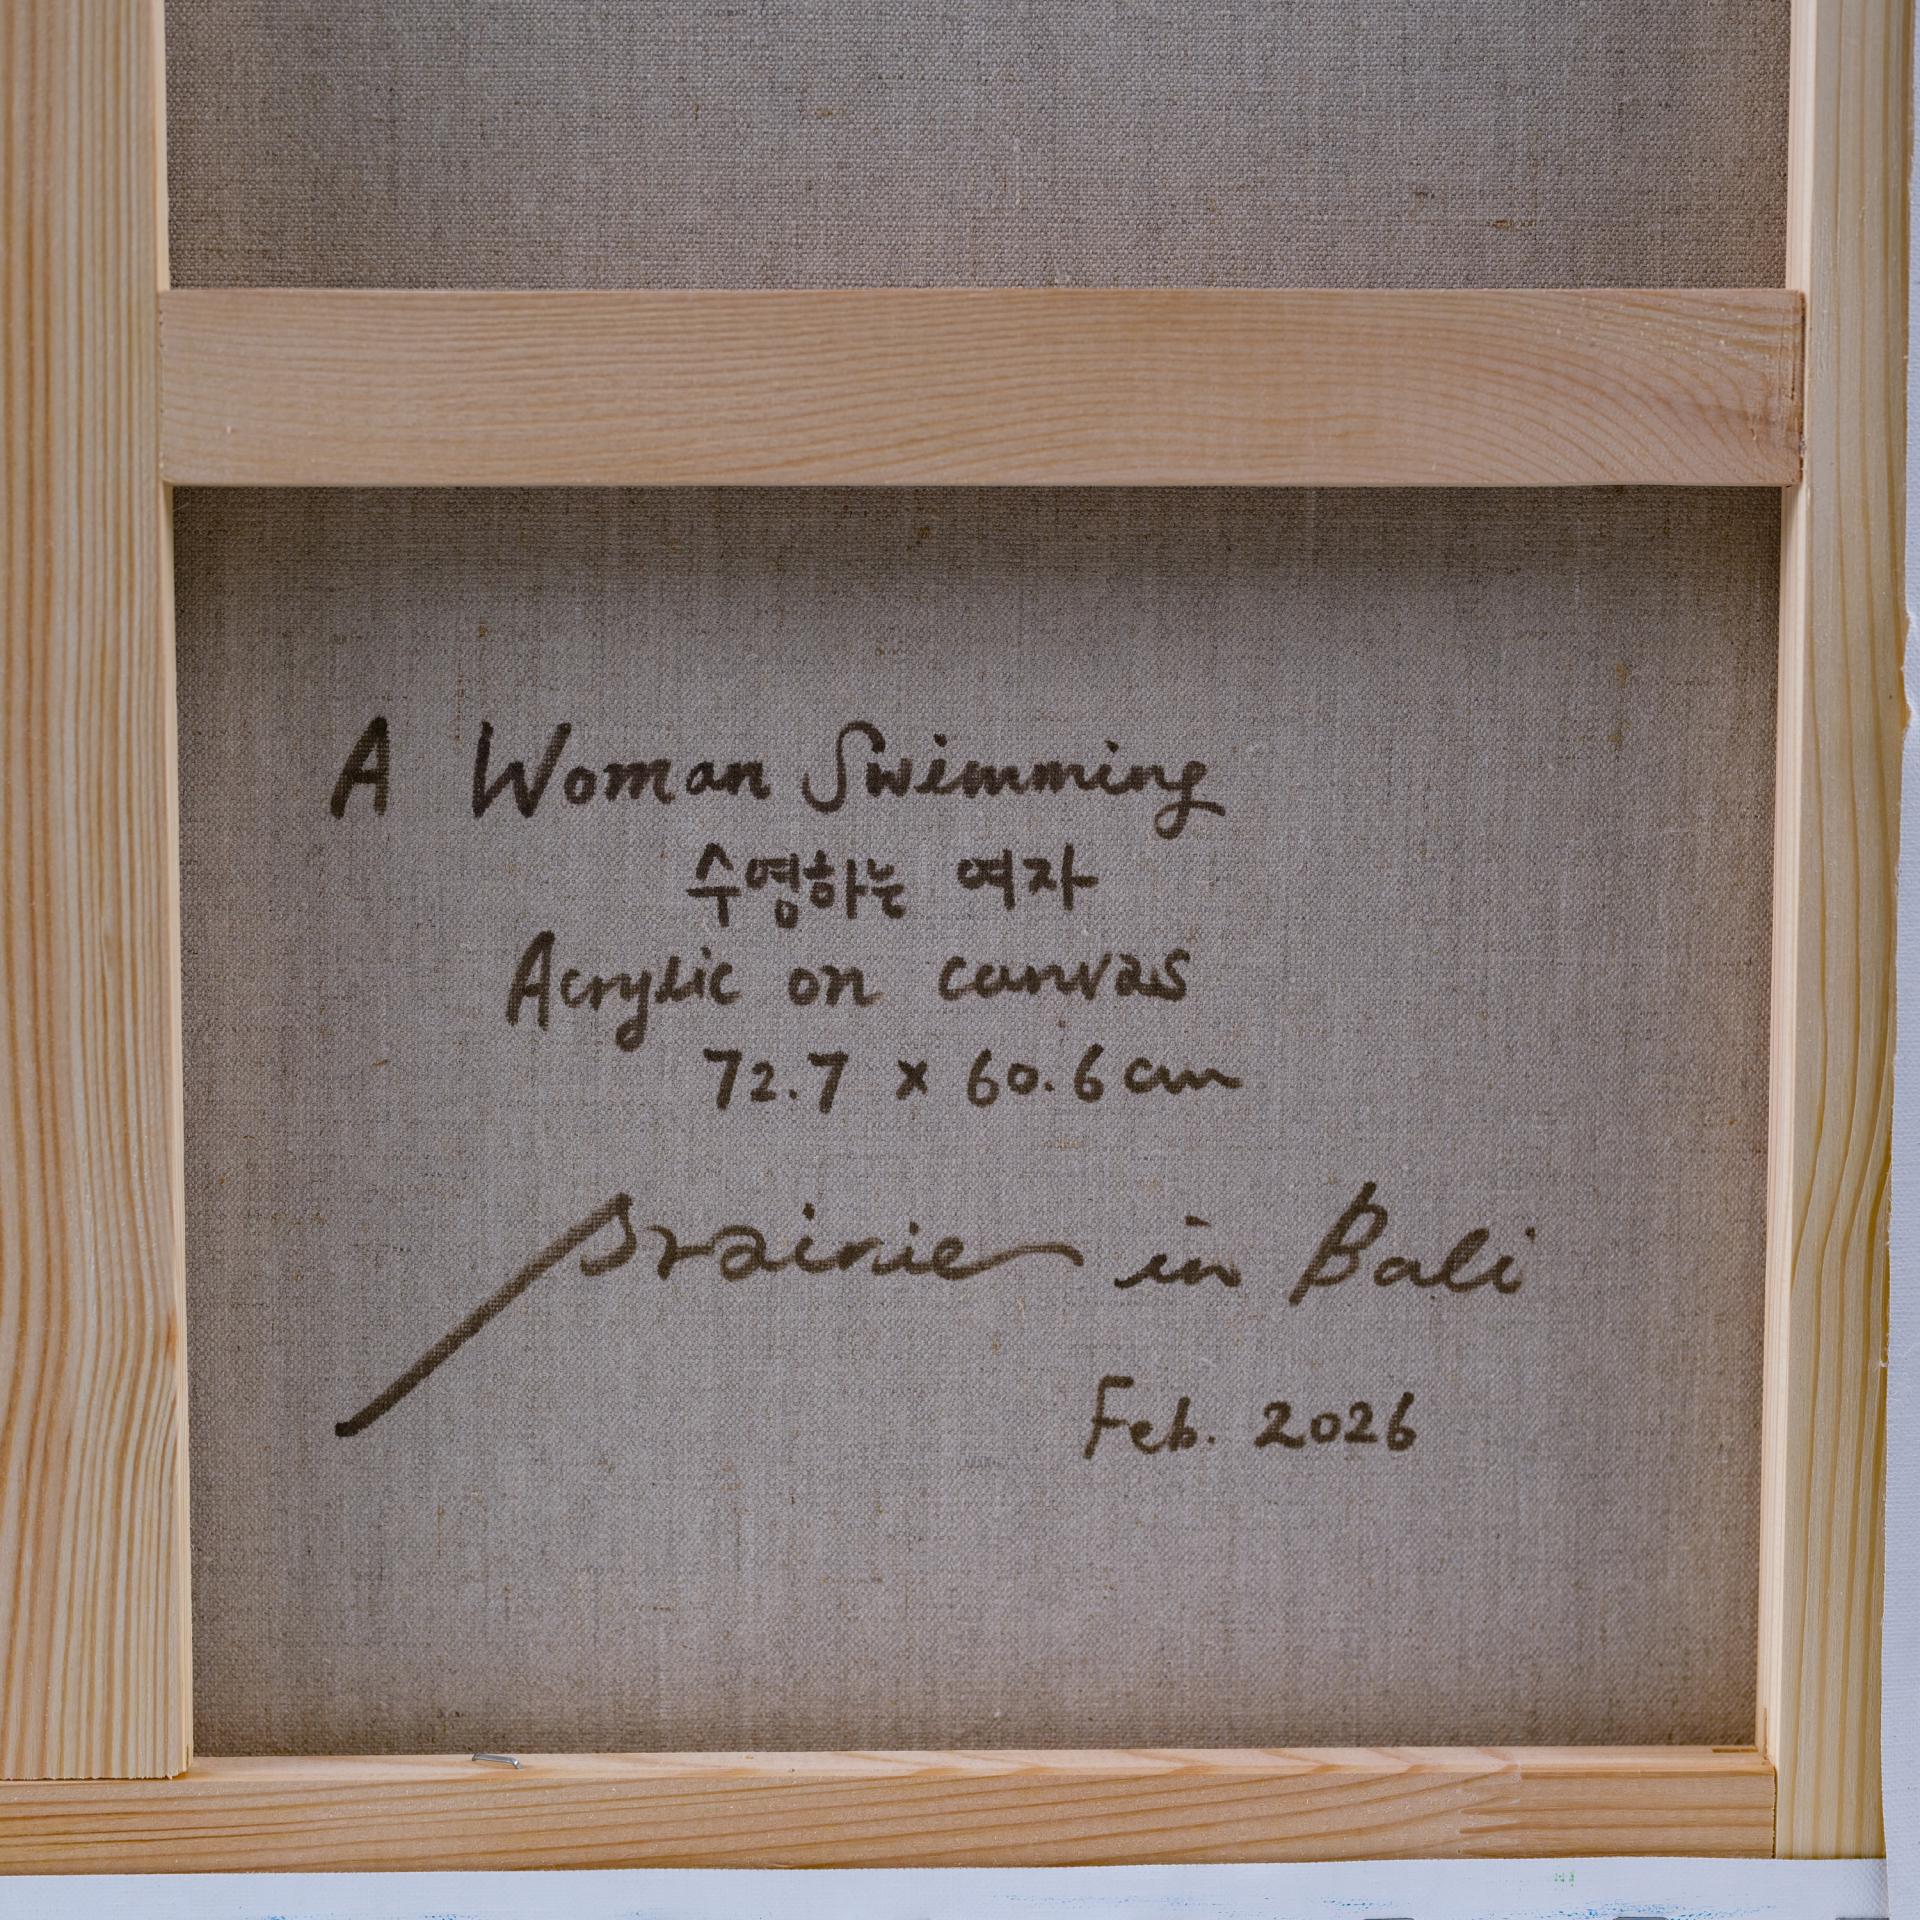 A Woman Swimming
수영하는 여자
Acrylic on canvas
72.7 x 60.6 cm
Prairie in Bali
Feb. 2026